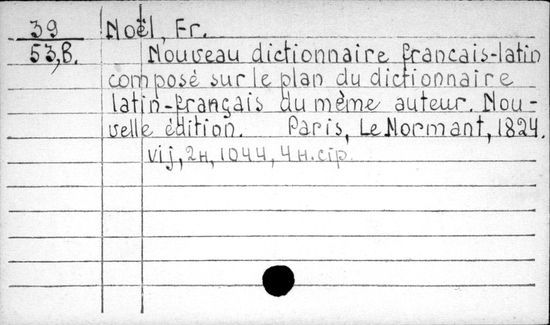 39 Noël, Fr.
53,B. Nouveau dictionnaire français-latin
composé sur le plan du dictionnaire
latin-français du même auteur. Nou-
velle édition. Paris, Le Normant, 1824.
vij, 2н, 1044, 4 н. стр.